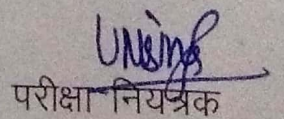 UNSingh
परीक्षा नियंत्रक